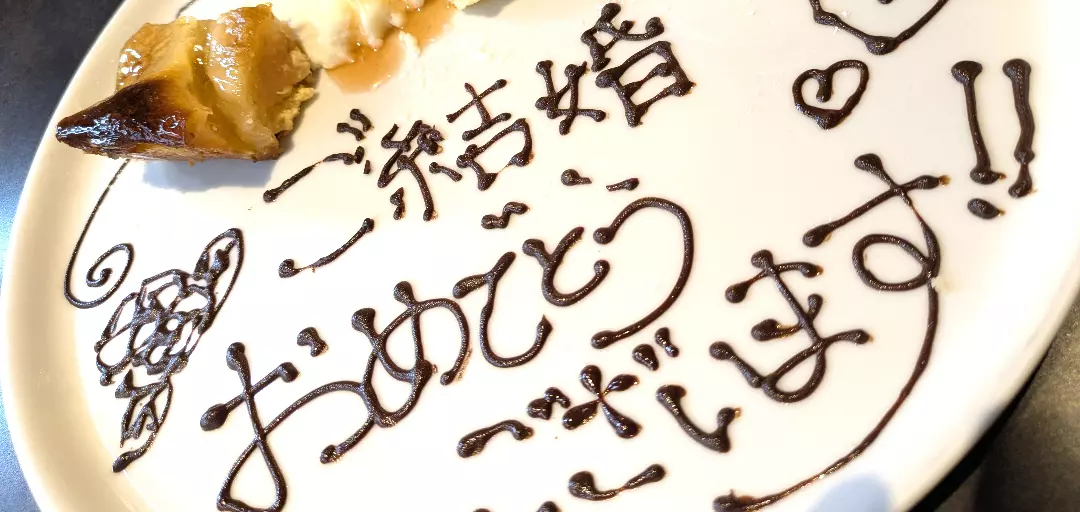 ご結婚
おめでとう
ございます!!